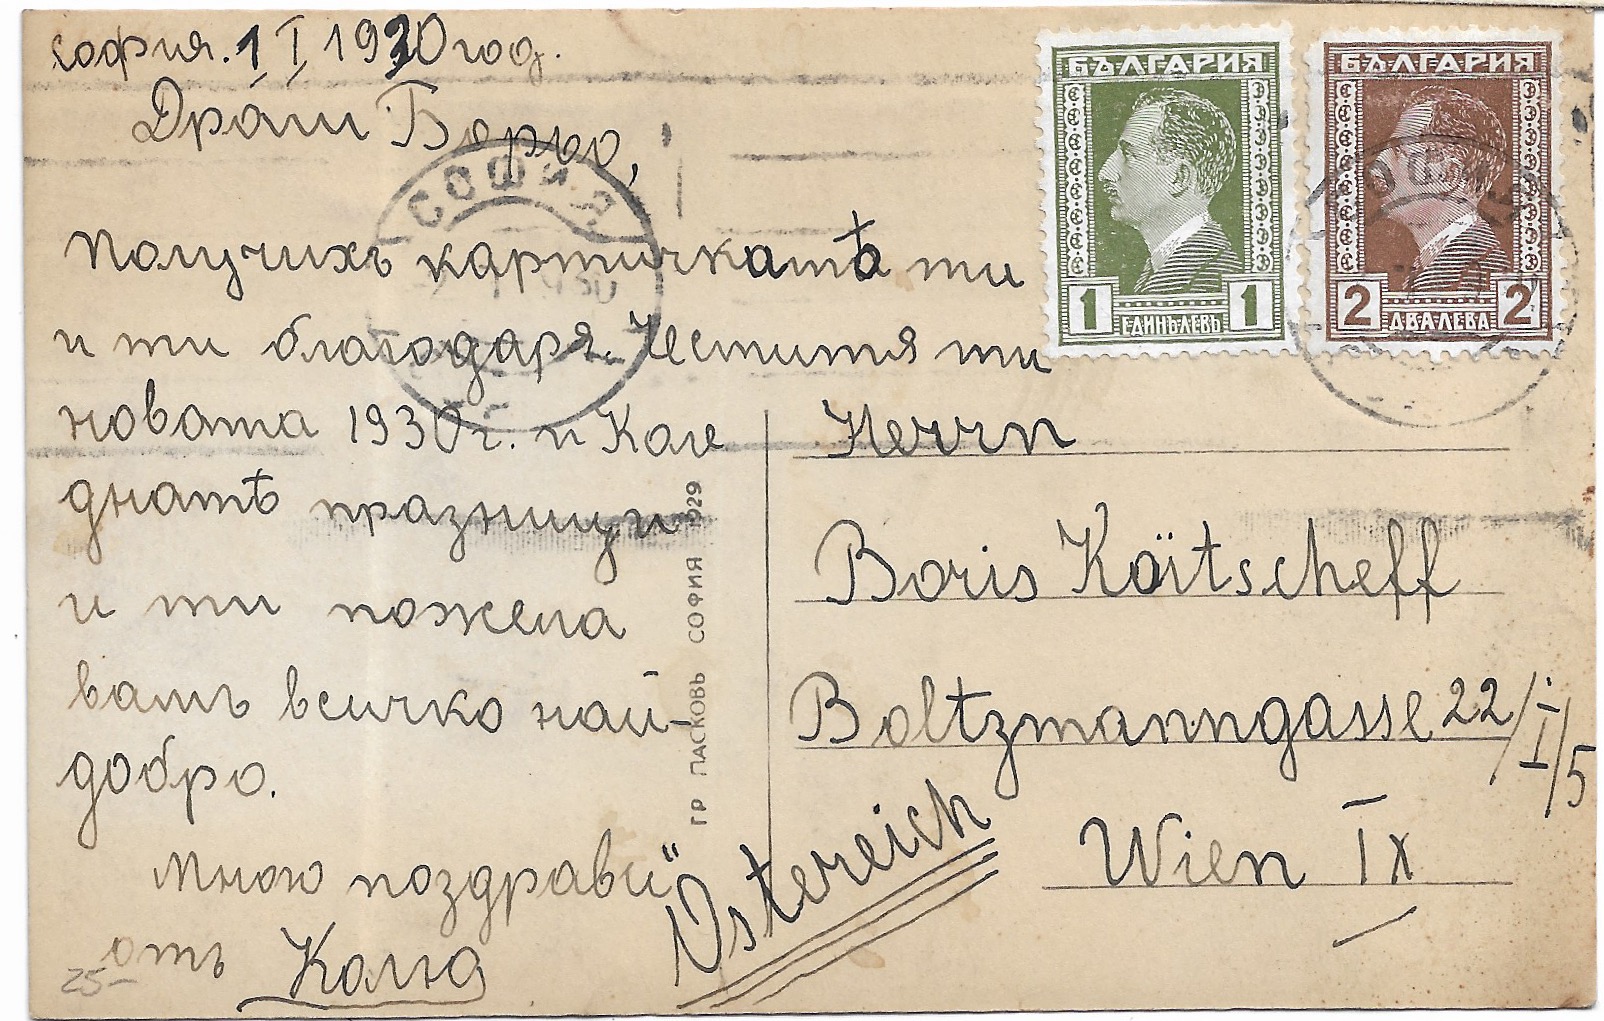 София. 1 I 1930 год.
Драги Борьо,
Получихъ картичкатѣ ти
и ти благодаря. Честитя ти
новата 1930 г. и Коле
днатѣ празници
и ти пожела
вамъ всичко най-
добро.
Много поздрави
отъ Колю
25-
БЪЛГАРИЯ
1 ЕДИНЪ ЛЕВЪ 1
БЪЛГАРИЯ
2 ДВА ЛЕВА 2
СОФИЯ
ГР ПАСКОВЬ СОФИЯ 929
Herrn
Boris Koitscheff
Boltzmanngasse 22/I/5
Wien IX
Östereich